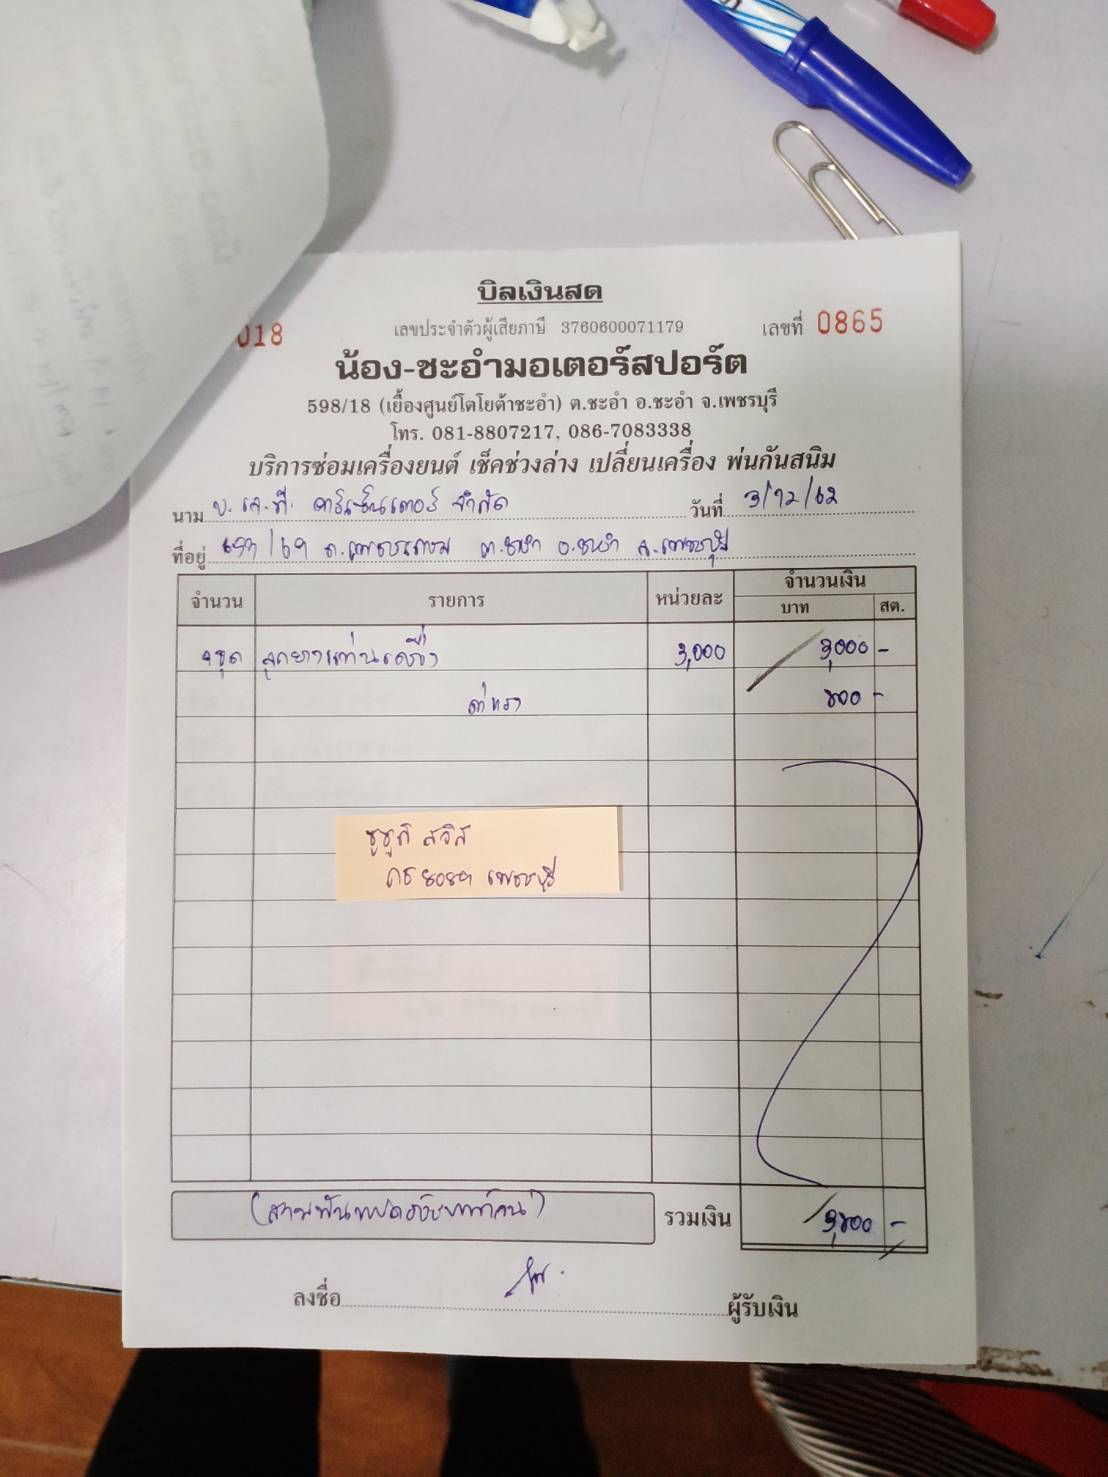 บิลเงินสด
018 เลขประจำตัวผู้เสียภาษี 3760600071179 เลขที่ 0865
น้อง-ชะอำมอเตอร์สปอร์ต
598/18 (เยื้องศูนย์โตโยต้าชะอำ) ต.ชะอำ อ.ชะอำ จ.เพชรบุรี
โทร. 081-8807217, 086-7083338
บริการซ่อมเครื่องยนต์ เช็คช่วงล่าง เปลี่ยนเครื่อง พ่นกันสนิม
นาม บ. เจ.ที. คาร์เซ็นเตอร์ จำกัด วันที่ 3/12/62
ที่อยู่ ถ.เพชรเกษม ต.ชะอำ อ.ชะอำ จ.เพชรบุรี
จำนวน รายการ หน่วยละ จำนวนเงิน
บาท สต.
1 ชุด ลูกยางแท่นเครื่อง 3,000 3,000 -
ค่าแรง 800 -
ซูซูกิ สวิส
กธ 8089 เพชรบุรี
(สามพันแปดร้อยบาทถ้วน) รวมเงิน 3,800 -
ลงชื่อ ผู้รับเงิน